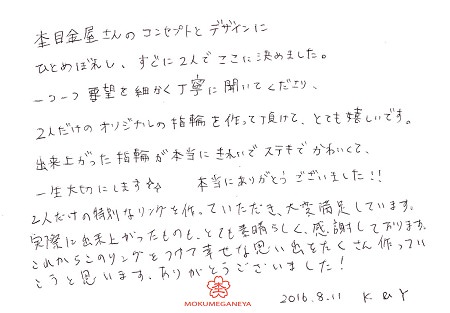 杢目金屋さんのコンセプトとデザインに
ひとめぼれし、すぐに2人でここに決めました。
一つ一つ要望を細かく丁寧に聞いてくださり、
2人だけのオリジナルの指輪を作って頂けて、とても嬉しいです。
出来上がった指輪が本当にきれいでステキでかわいくて、
一生大切にします☆☆ 本当にありがとうございました!!
2人だけの特別なリングを作っていただき、大変満足しています。
実際に出来上がったものも、とても素晴らしく、感謝しております。
これからこのリングをつけて幸せな思い出をたくさん作ってい
こうと思います。ありがとうございました!
MOKUMEGANEYA
2016.8.11 K & Y